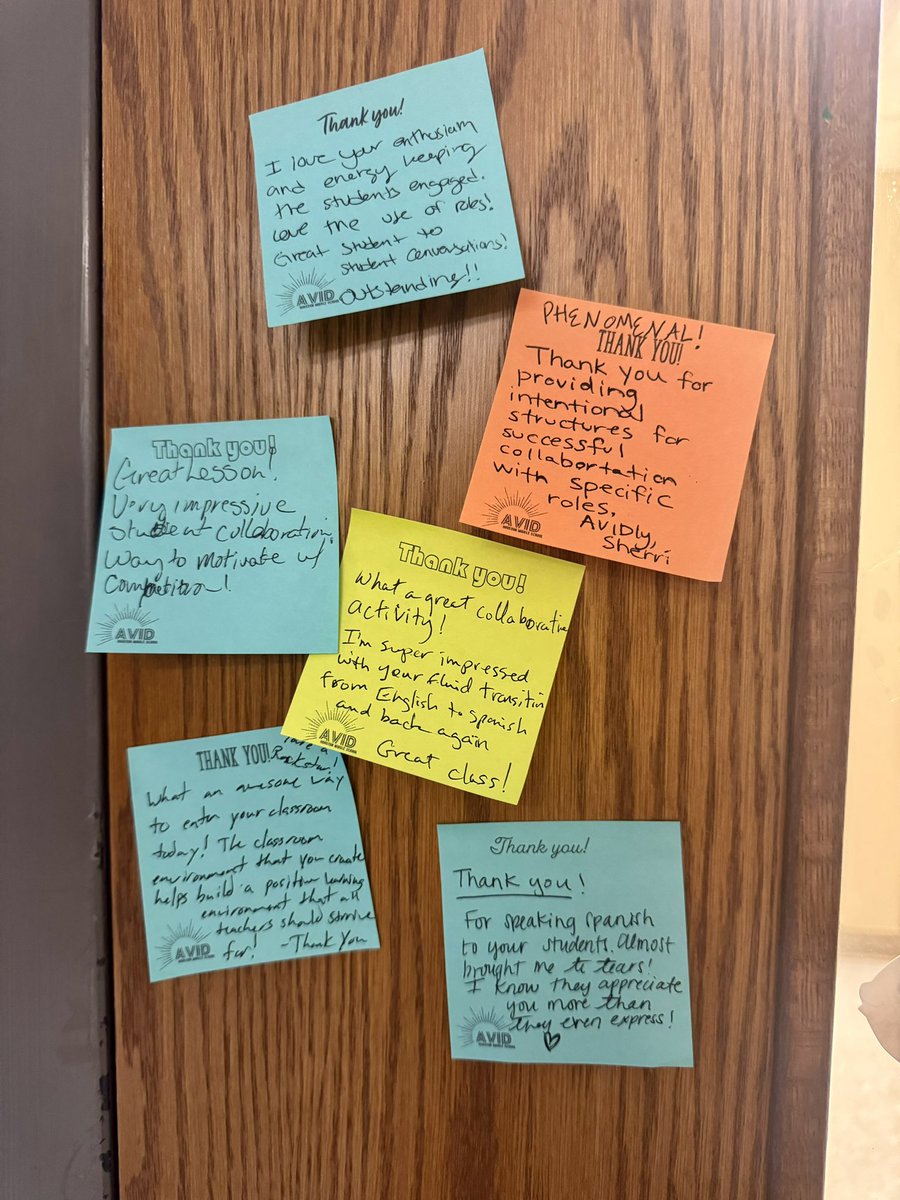 Thank you!
I love your enthusiasm
and energy keeping
the students engaged.
Love the use of roles!
Great student to
student conversations!
Outstanding!!
AVID
PHENOMENAL!
THANK YOU!
Thank you for
providing
intentional
structures for
successful
collabortation
with specific
roles,
AVIDly,
Sherri
AVID
Thank you!
Great Lesson!
Very impressive
student collaboration.
Way to motivate w/
Competition!
AVID
Thank you!
What a great collaborative
activity!
I'm super impressed
with your fluid transition
from English to Spanish
and back again
Great class!
AVID
THANK YOU!
a
Rockstar!
What an awesome way
to enter your classroom
today! The classroom
environment that you create
helps build a positive learning
environment that all
teachers should strive
for! -Thank You
AVID
Thank you!
Thank you!
For speaking spanish
to your students. Almost
brought me to tears!
I know they appreciate
you more than
they even express!
AVID